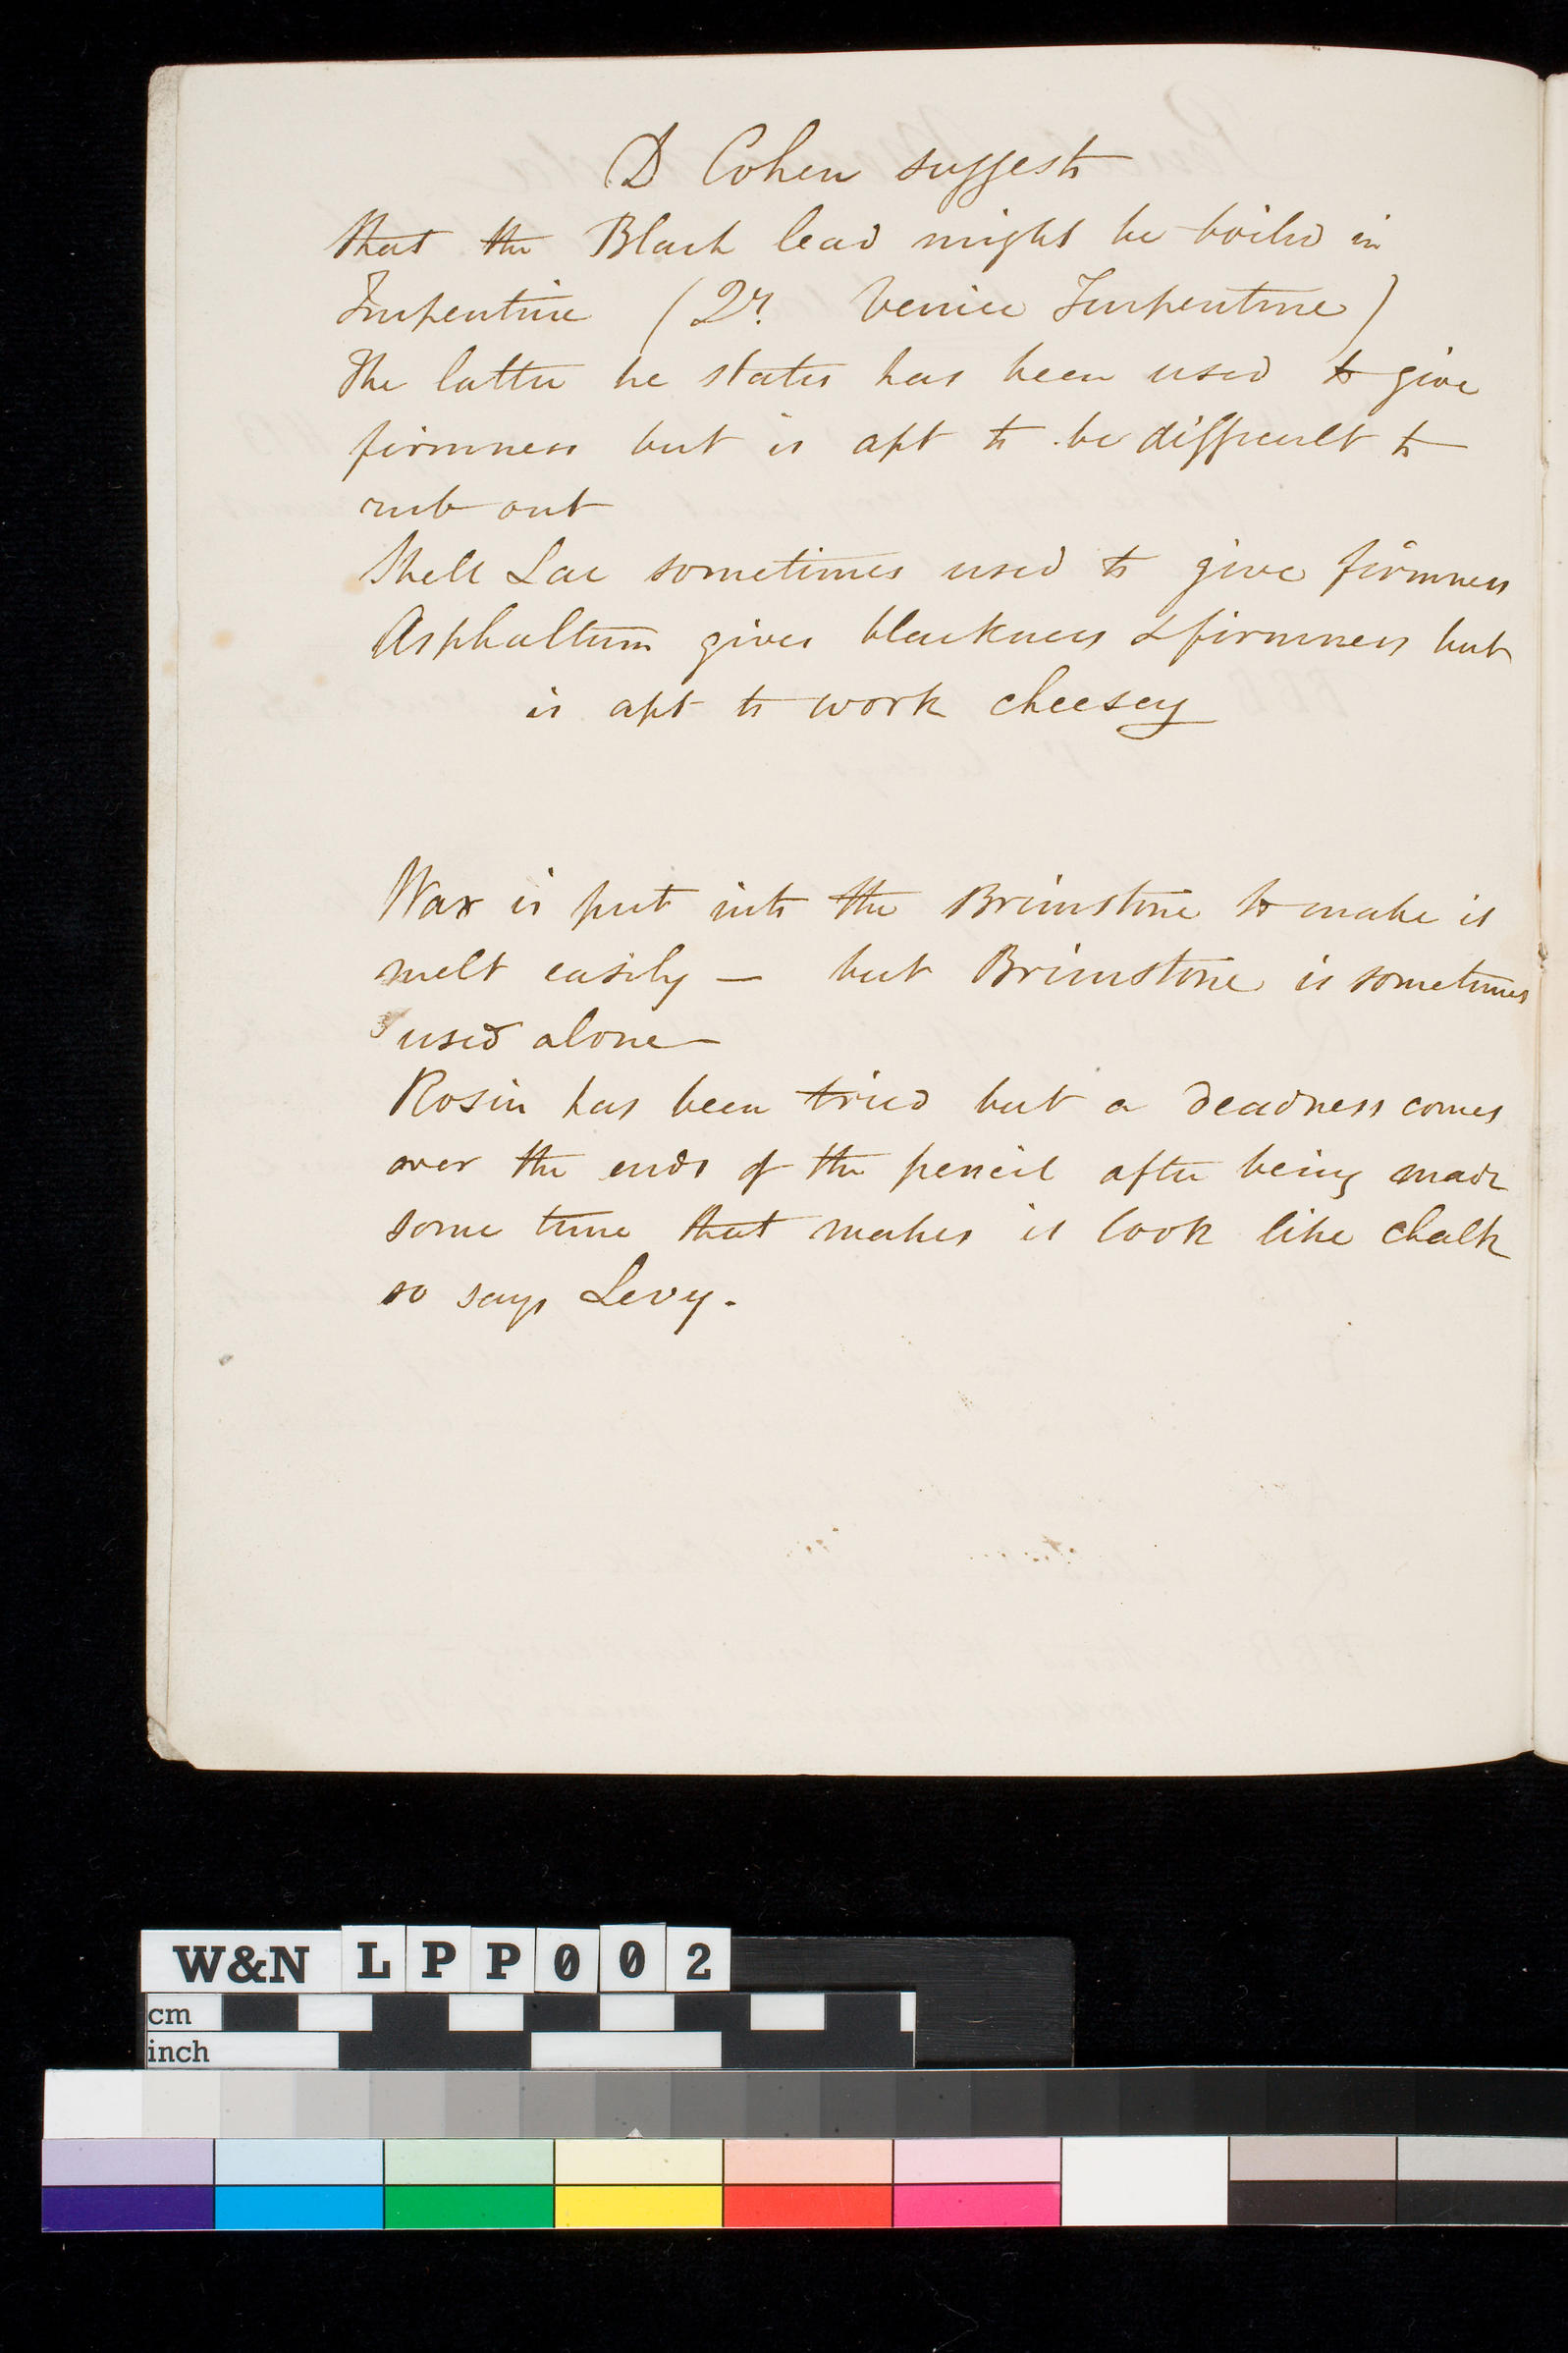 D Cohen suggests
that the Black lead might be boiled in
Turpentine (Qy. Venice Turpentine)
The latter he states has been used to give
firmness but is apt to be difficult to
rub out
Shell Lac sometimes used to give firmness
Asphaltum gives blackness & firmness but
is apt to work cheesey
Wax is put into the Brimstone to make it
melt easily — but Brimstone is sometimes
used alone —
Rosin has been tried but a deadness comes
over the ends of the pencil after being made
some time that makes it look like chalk
so says Levy.
W&N LPP002
cm
inch